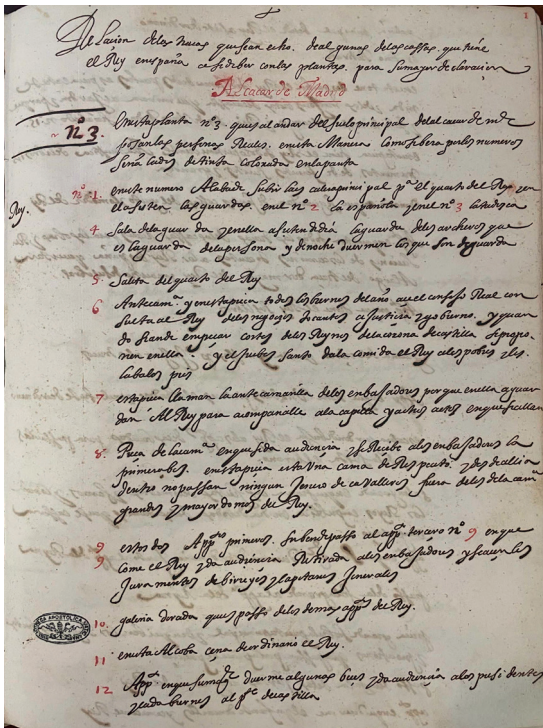 1
Relacion de las traças que se an echo de algunas de las cassas que tiene
el Rey en españa a se de ber con las plantas para su mayor declaracion
Alcaçar de Madrid
nº 3.
En esta planta nº 3 que es al andar del suelo principal del alcaçar de md
posan las personas Reales. en esta Manera Como se bera por los numeros
Señalados de tinta colorada en la planta
Rey.
nº 1. en este numero Alabade Subir la escalera principal pª el quarto del Rey en
ella asisten las guardas en el nº 2 la española y en el nº 3 la tudesca
4 Sala de la guarda y en ella asiste de dia la guarda de los archeros que
es la guarda de la persona y de noche duermen los que son de guarda
5. Salita del quarto del Rey
6 Antecamª y en esta pieça todos los biernes del año aue el consejo Real con
sulta al Rey de los negocios tocantes a justicia y gobierno. y quan
do se ande empeçar cortes de los Reynos de la corona de castilla se propo
nen en ella. y el juebes santo da la comida el Rey a los pobres y les
laba los pies
7 esta pieça llaman la antecamarilla de los enbassadores porque en ella aguar
dan Al Rey para acompañalle a la capilla y a otros actos en que se allan
8. Pieça de la camª en que se da audiencia y se Recibe a los enbassadores la
primera bes. en esta pieça esta una cama de Respecto. y desde alli a
dentro no passan ningun genero de caballeros fuera de los de la camª
grandes y mayordomos del Rey.
9 estos dos Appºs primeros. Suben de passo al appº tercero nº 9 en que
9 come el Rey y da audiencia Retirada a los enbassadores y se açen los
Juramentos de birreyes y capitanes Jenerales
10. galeria dorada que es passo de los demas appºs del Rey.
11 en esta Alcoba cena de ordinario el Rey.
12 Appº en que su magd duerme algunas beces y da audiencia a los presidentes
y cada biernes al pte de castilla